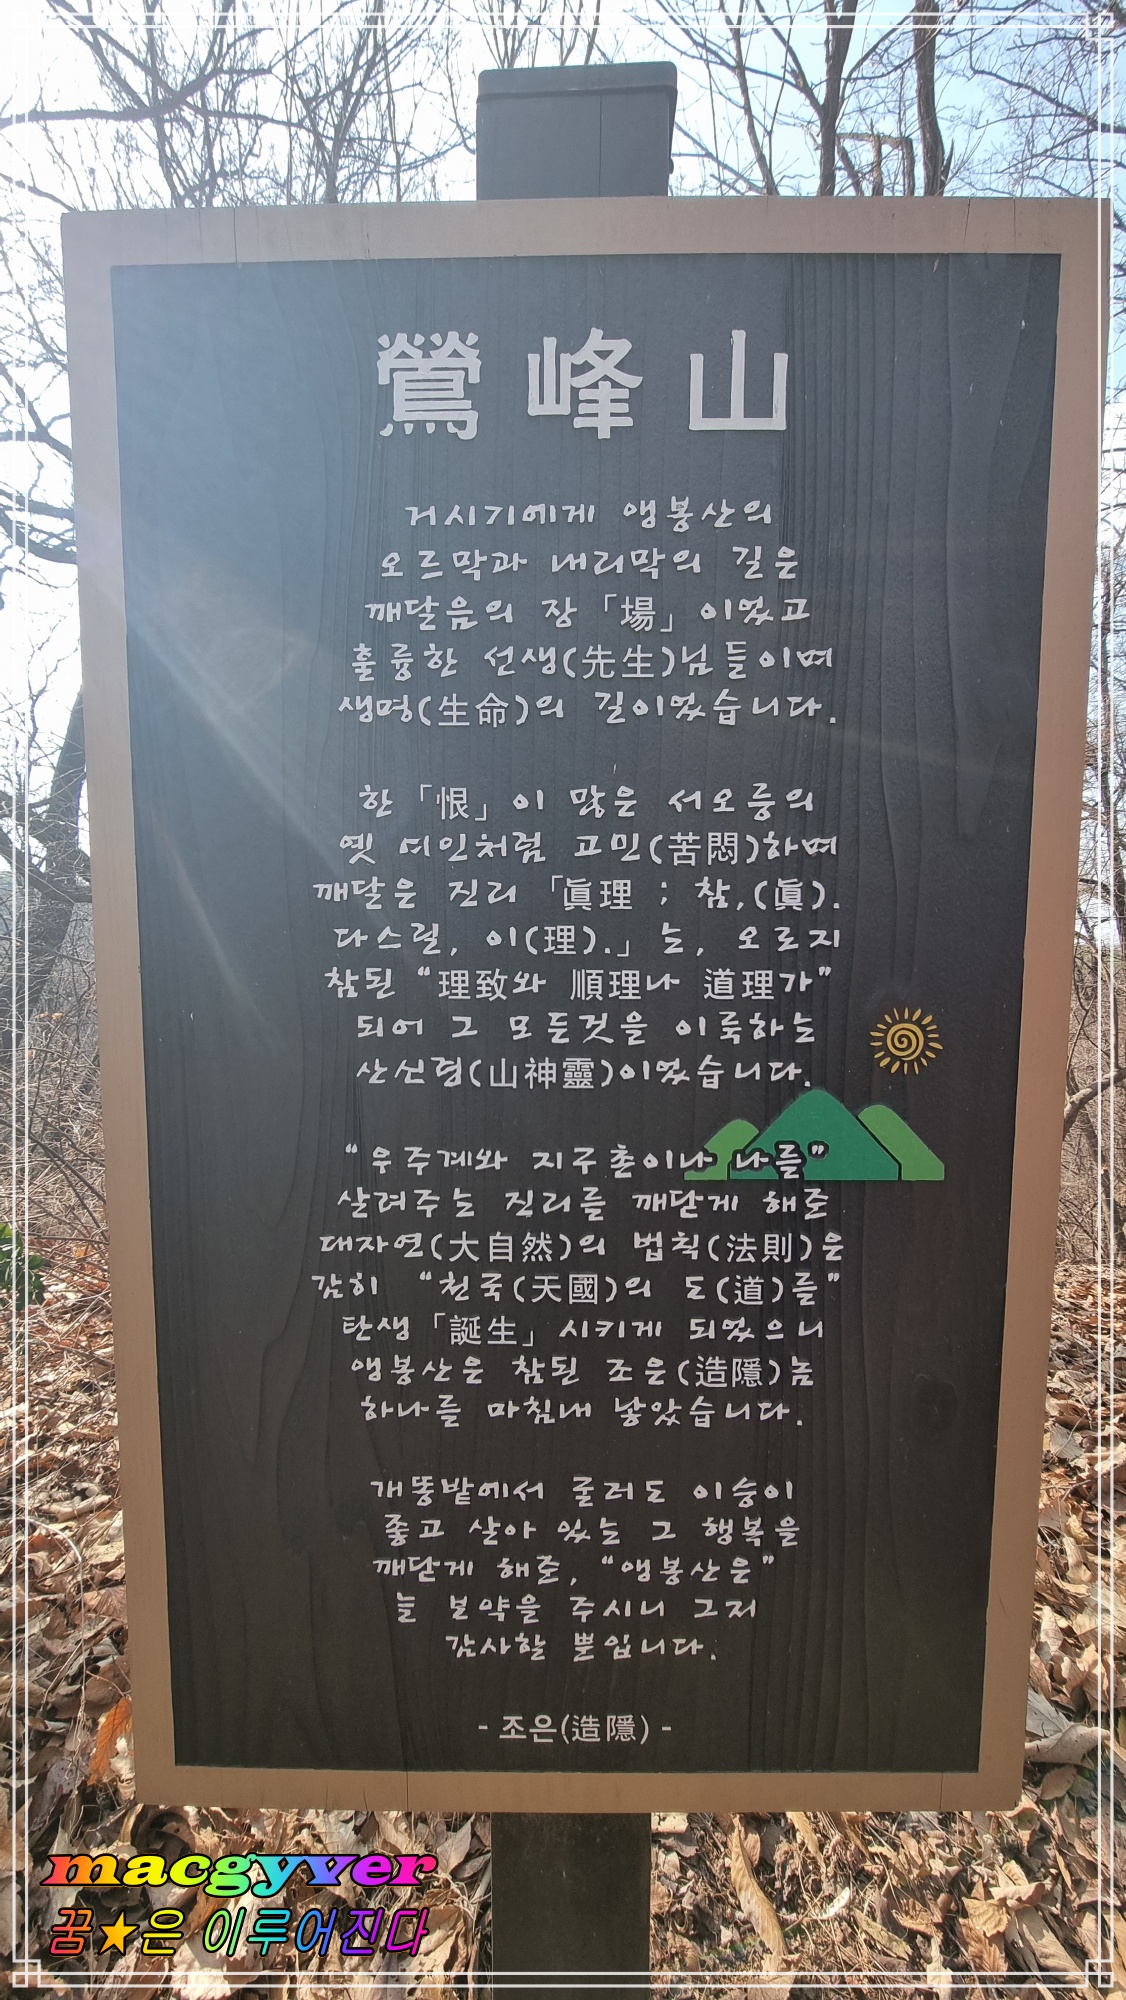 鶯峰山
거시기에게 앵봉산의
오르막과 내리막의 길은
깨달음의 장「場」이였고
훌륭한 선생(先生)님들이며
생명(生命)의 길이였습니다.
한「恨」이 많은 서오릉의
옛 여인처럼 고민(苦悶)하며
깨달은 진리「眞理 ; 참,(眞).
다스릴, 이(理).」는, 오로지
참된 “理致와 順理나 道理가”
되어 그 모든것을 이룩하는
산신령(山神靈)이였습니다.
“우주계와 지구촌이나 나를”
살려주는 진리를 깨닫게 해준
대자연(大自然)의 법칙(法則)은
감히 “천국(天國)의 도(道)를”
탄생「誕生」시키게 되였으니
앵봉산은 참된 조은(造隱)놈
하나를 마침내 낳았습니다.
개똥밭에서 굴러도 이승이
좋고 살아 있는 그 행복을
깨닫게 해준, “앵봉산은”
늘 보약을 주시니 그저
감사할 뿐입니다.
- 조은(造隱) -
macgyver
꿈★은 이루어진다